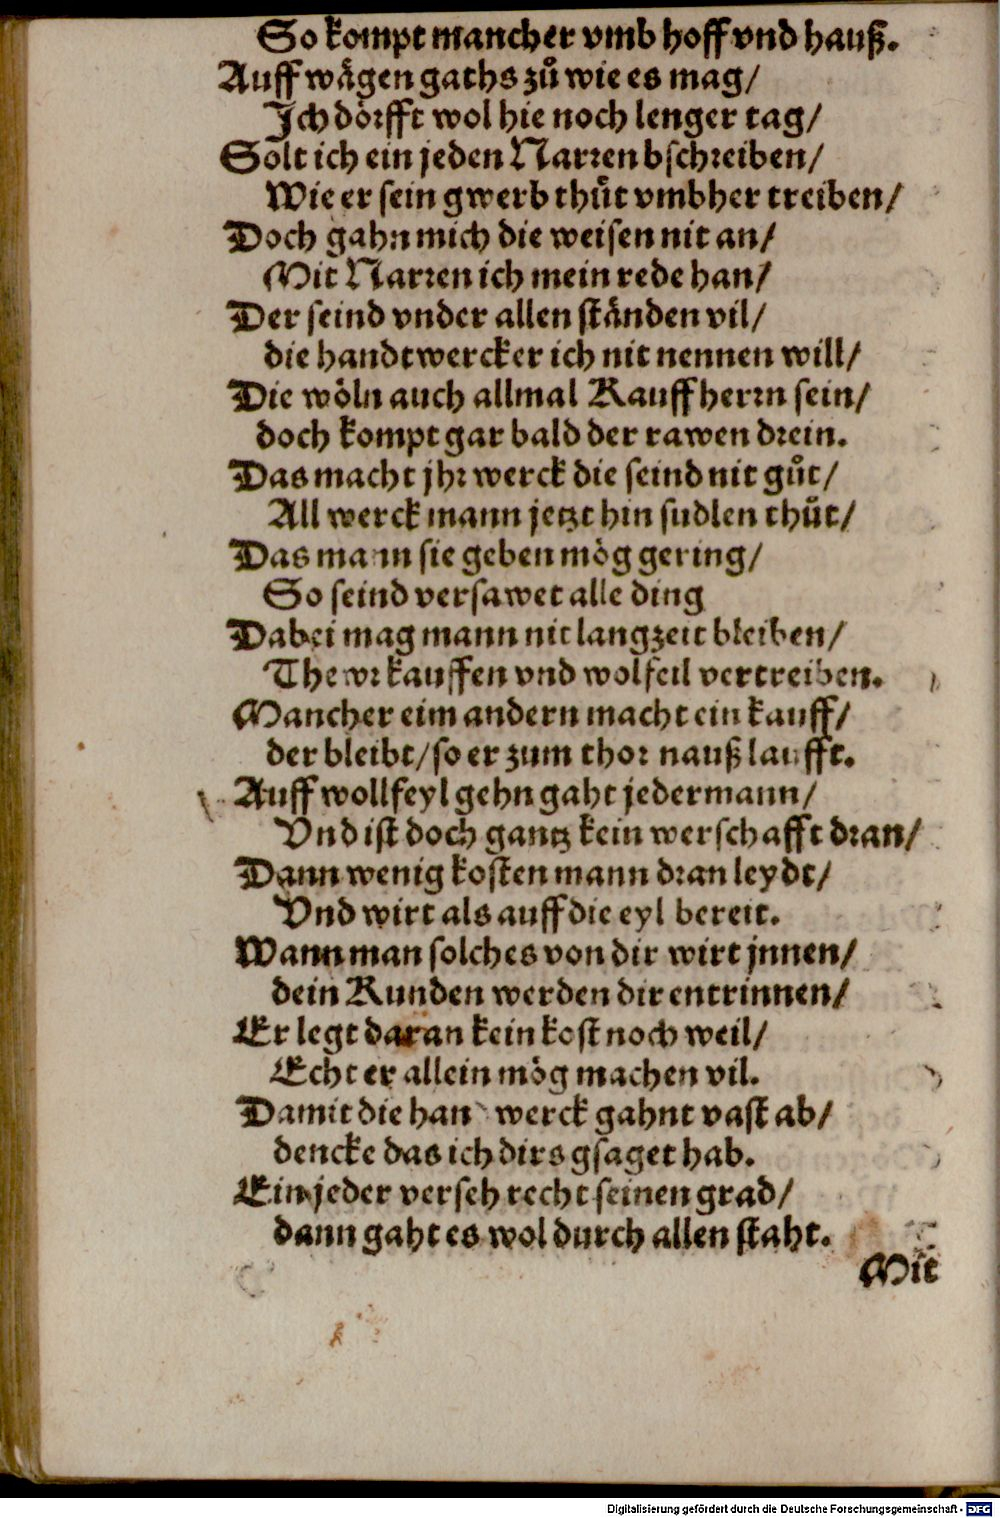 So kompt mancher vmb hoff vnd hauß.
Auff wägen gaths zů wie es mag/
Jch dörfft wol hie noch lenger tag/
Solt ich ein jeden Narren bschreiben/
Wie er sein gwerb thůt vmbher treiben/
Doch gahn mich die weisen nit an/
Mit Narren ich mein rede han/
Der seind vnder allen ständen vil/
die handtwercker ich nit nennen will/
Die wöln auch allmal Kauffherrn sein/
doch kompt gar bald der rawen drein.
Das macht jhr werck die seind nit gůt/
All werck mann jetzt hin sudlen thůt/
Das mann sie geben mög gering/
So seind versawet alle ding
Dabei mag mann nit langzeit bleiben/
Thewr kauffen vnd wolfeil vertreiben.
Mancher eim andern macht ein kauff/
der bleibt/so er zum thor nauß laufft.
Auff wollfeyl gehn gaht jedermann/
Vnd ist doch gantz kein werschafft dran/
Dann wenig kosten mann dran leydt/
Vnd wirt als auff die eyl bereit.
Wann man solches von dir wirt jnnen/
dein Kunden werden dir entrinnen/
Er legt daran kein kost noch weil/
Echt er allein mög machen vil.
Damit die handwerck gahnt vast ab/
dencke das ich dirs gsaget hab.
Ein jeder verseh recht seinen grad/
dann gaht es wol durch allen staht.
Mit
Digitalisierung gefördert durch die Deutsche Forschungsgemeinschaft - DFG